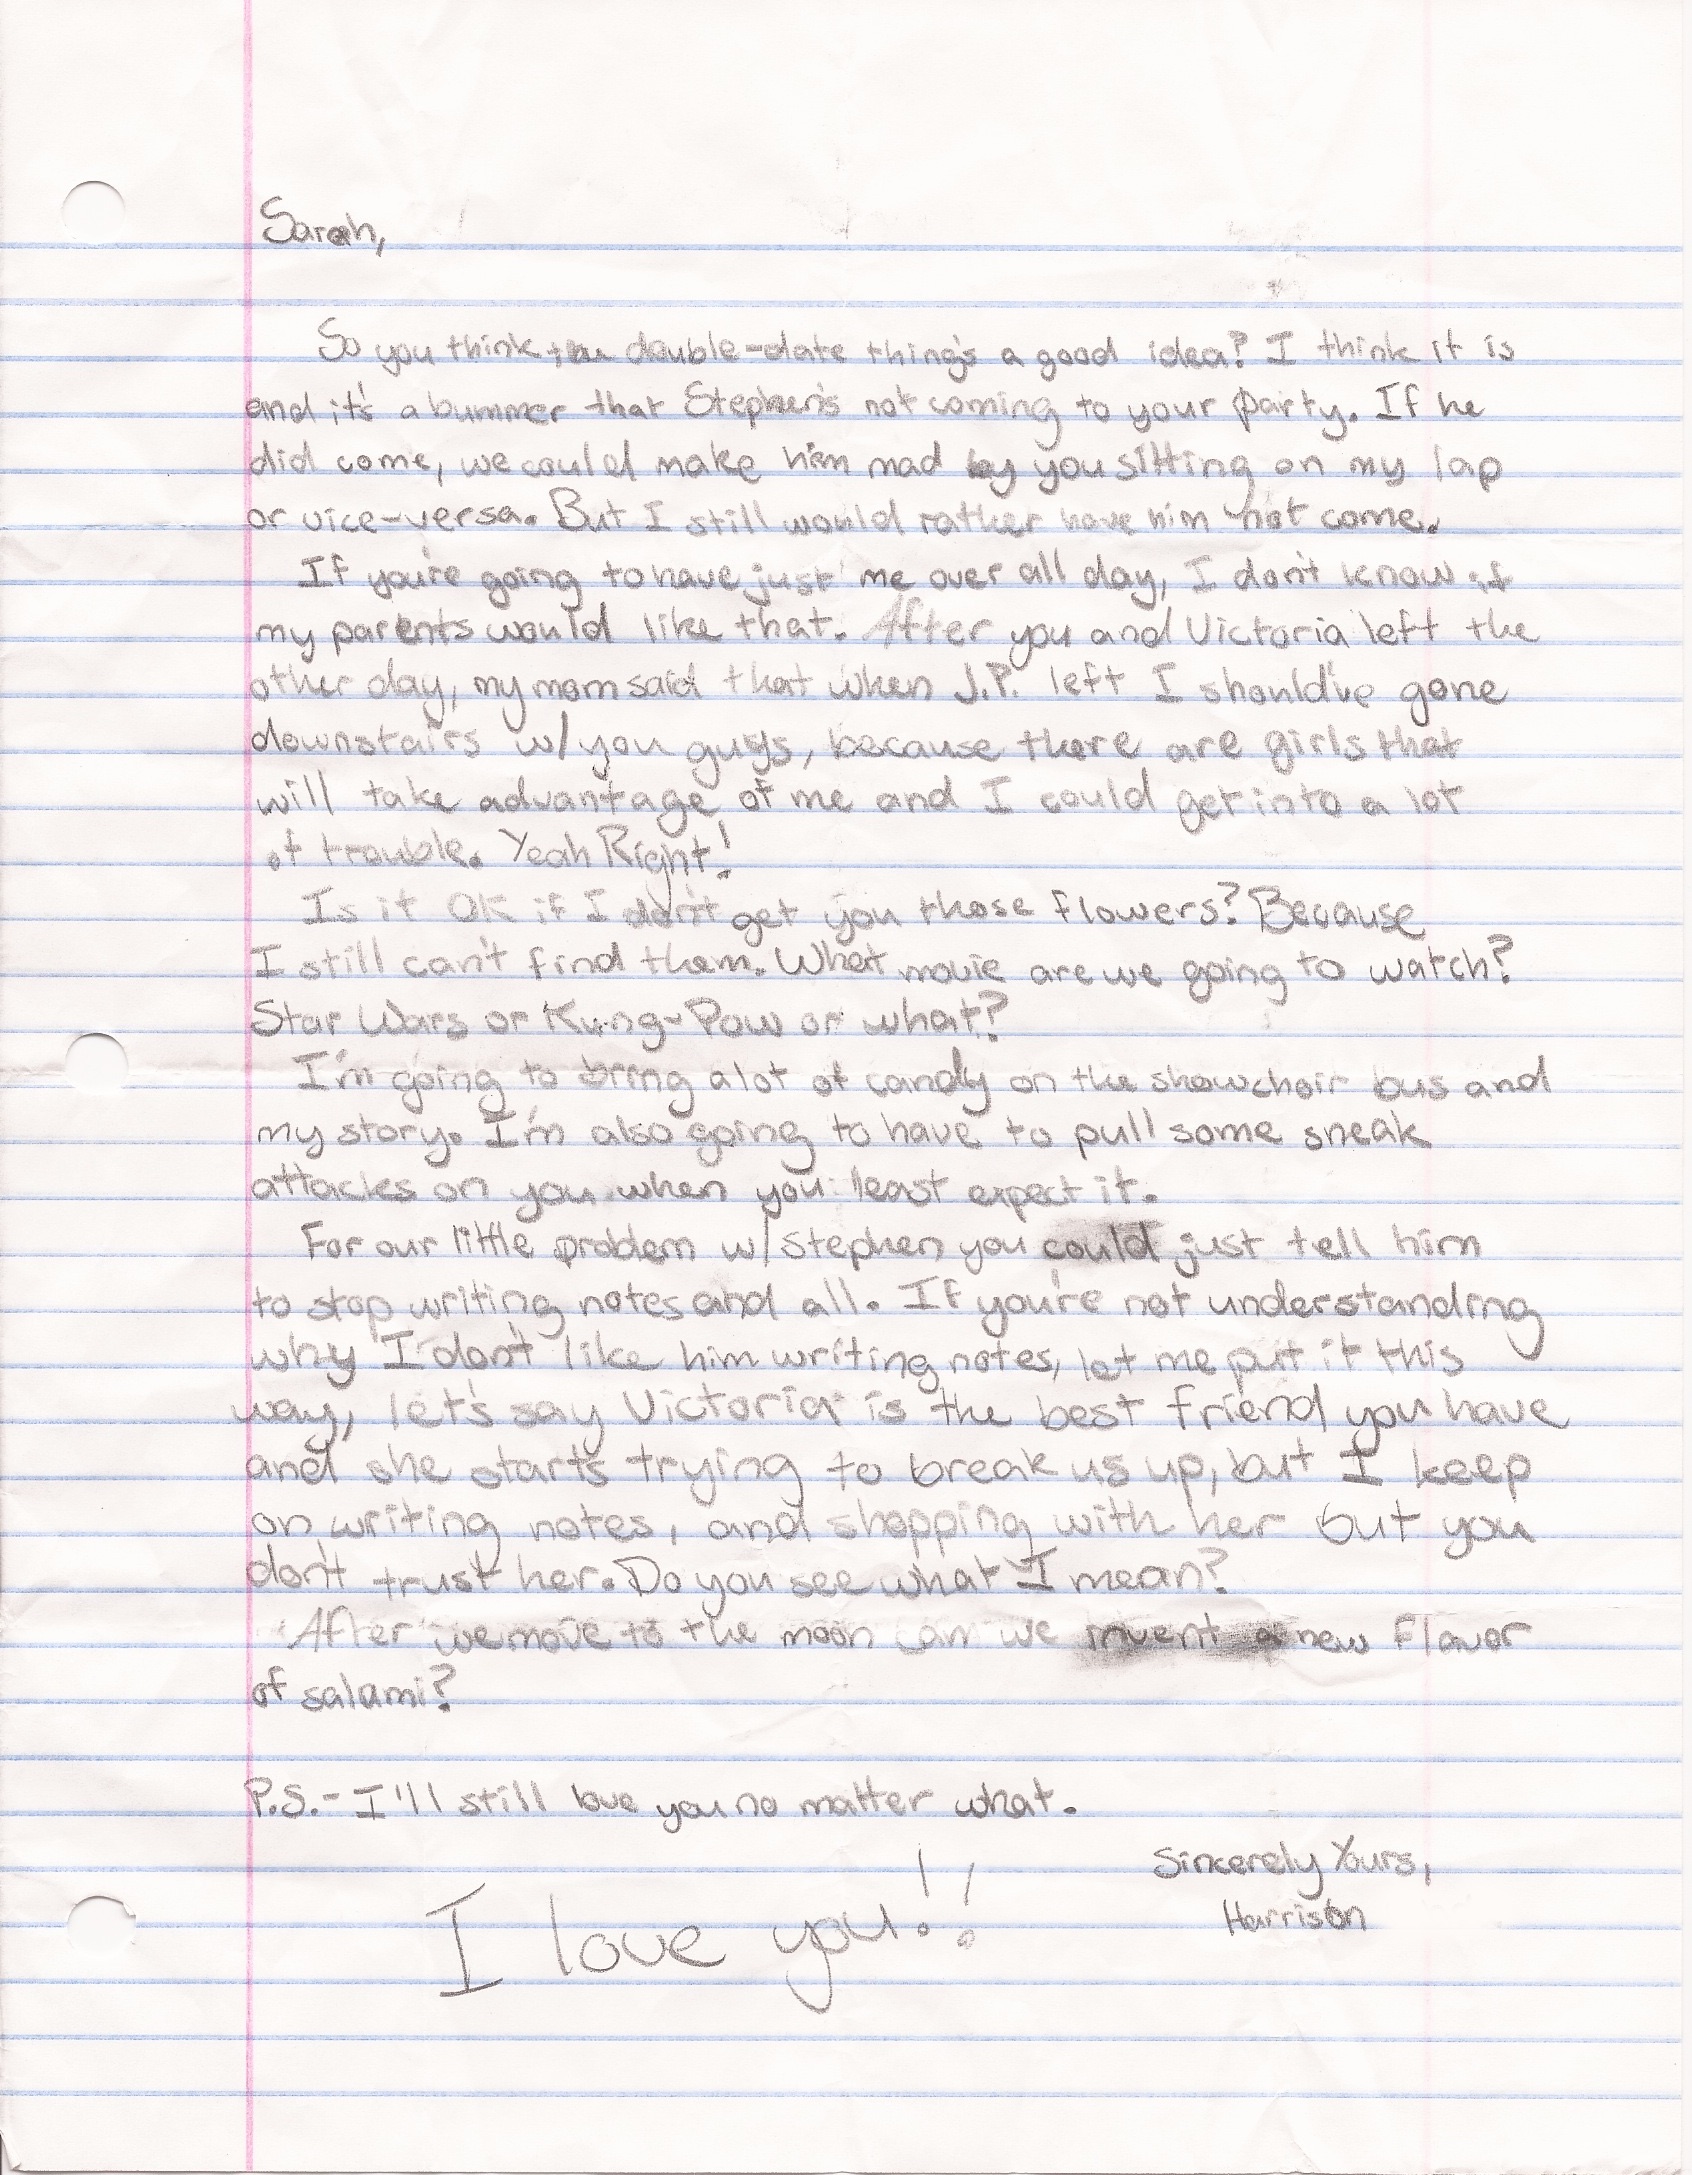 Sarah,
So you think the double-date thing's a good idea? I think it is
and it's a bummer that Stephen's not coming to your party. If he
did come, we could make him mad by you sitting on my lap
or vice-versa. But I still would rather have him not come.
If you're going to have just me over all day, I don't know if
my parents would like that. After you and Victoria left the
other day, my mom said that when J.P. left I should've gone
downstairs w/ you guys, because there are girls that
will take advantage of me and I could get into a lot
of trouble. Yeah Right!
Is it OK if I don't get you those flowers? Because
I still can't find them. What movie are we going to watch?
Star Wars or Kung-Pow or what?
I'm going to bring a lot of candy on the showchoir bus and
my story. I'm also going to have to pull some sneak
attacks on you when you least expect it.
For our little problem w/ Stephen you could just tell him
to stop writing notes and all. If you're not understanding
why I don't like him writing notes, let me put it this
way, let's say Victoria is the best friend you have
and she starts trying to break us up, but I keep
on writing notes, and shopping with her but you
don't trust her. Do you see what I mean?
After we move to the moon can we invent a new flavor
of salami?
P.S.- I'll still love you no matter what.
Sincerely Yours,
Harrison
I love you!!